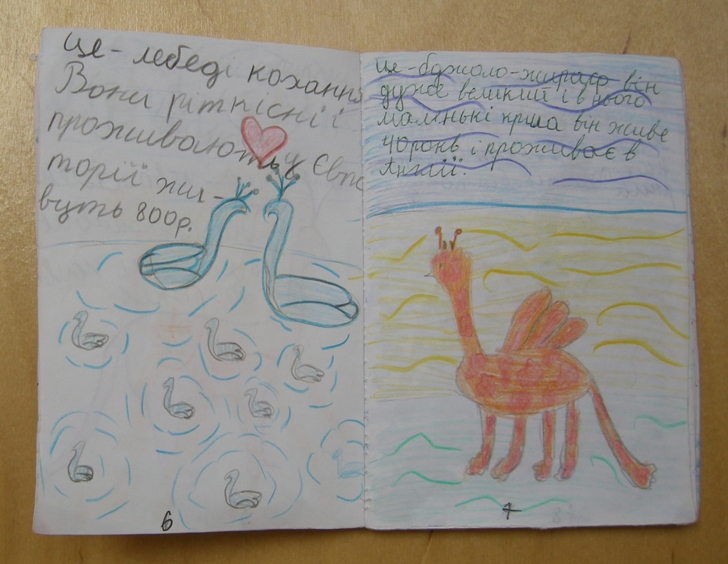 це - лебеді кохання
Вони рптисні і
проживають у Євпа
торії жи -
вуть 800р.
6
це -бджоло-жирафа він
дуже великий і в нього
маленькі крила він живе
40 років і проживає в
Англії.
7